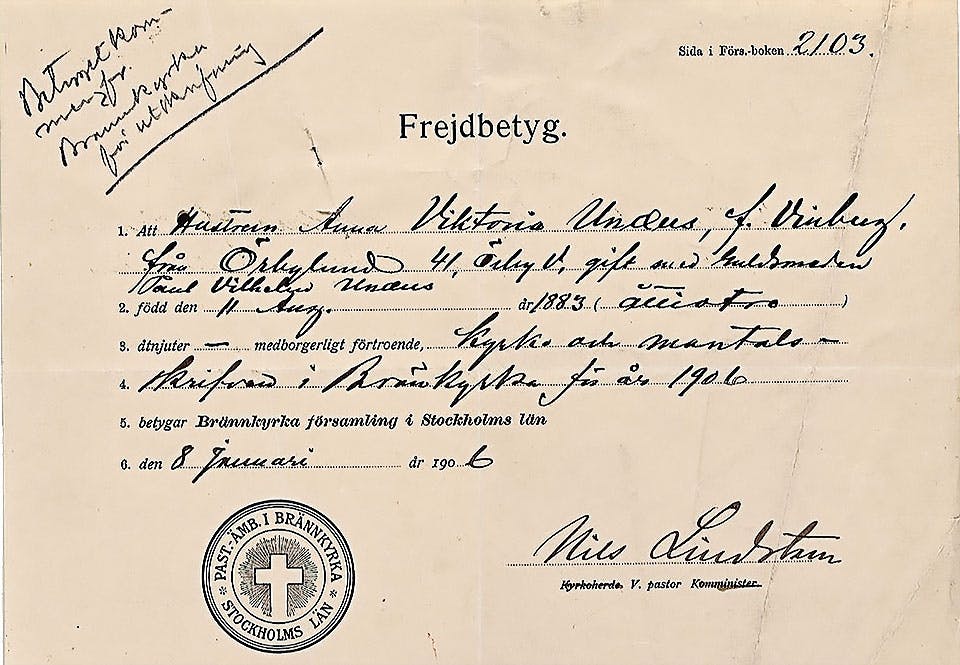 Sida i Förs.-boken 2103.
för
Brännkyrka
för utskrifning
Frejdbetyg.
1. Att Hustrun Anna Viktoria Undéus, f. Vinberg,
från Örbylund 41, Örby V, gift med Guldsmeden
Paul Vilhelm Undéus
2. född den 11 Aug. år 1883 (åttiotre)
3. åtnjuter — medborgerligt förtroende, kyrko och mantals-
4. skrifven i Bränkyrka för år 1906
5. betygar Brännkyrka församling i Stockholms län
6. den 8 Januari år 1906
Nils Lindstam
Kyrkoherde. V. pastor Komminister.
PAST.-ÄMB. I BRÄNNKYRKA
STOCKHOLMS LÄN